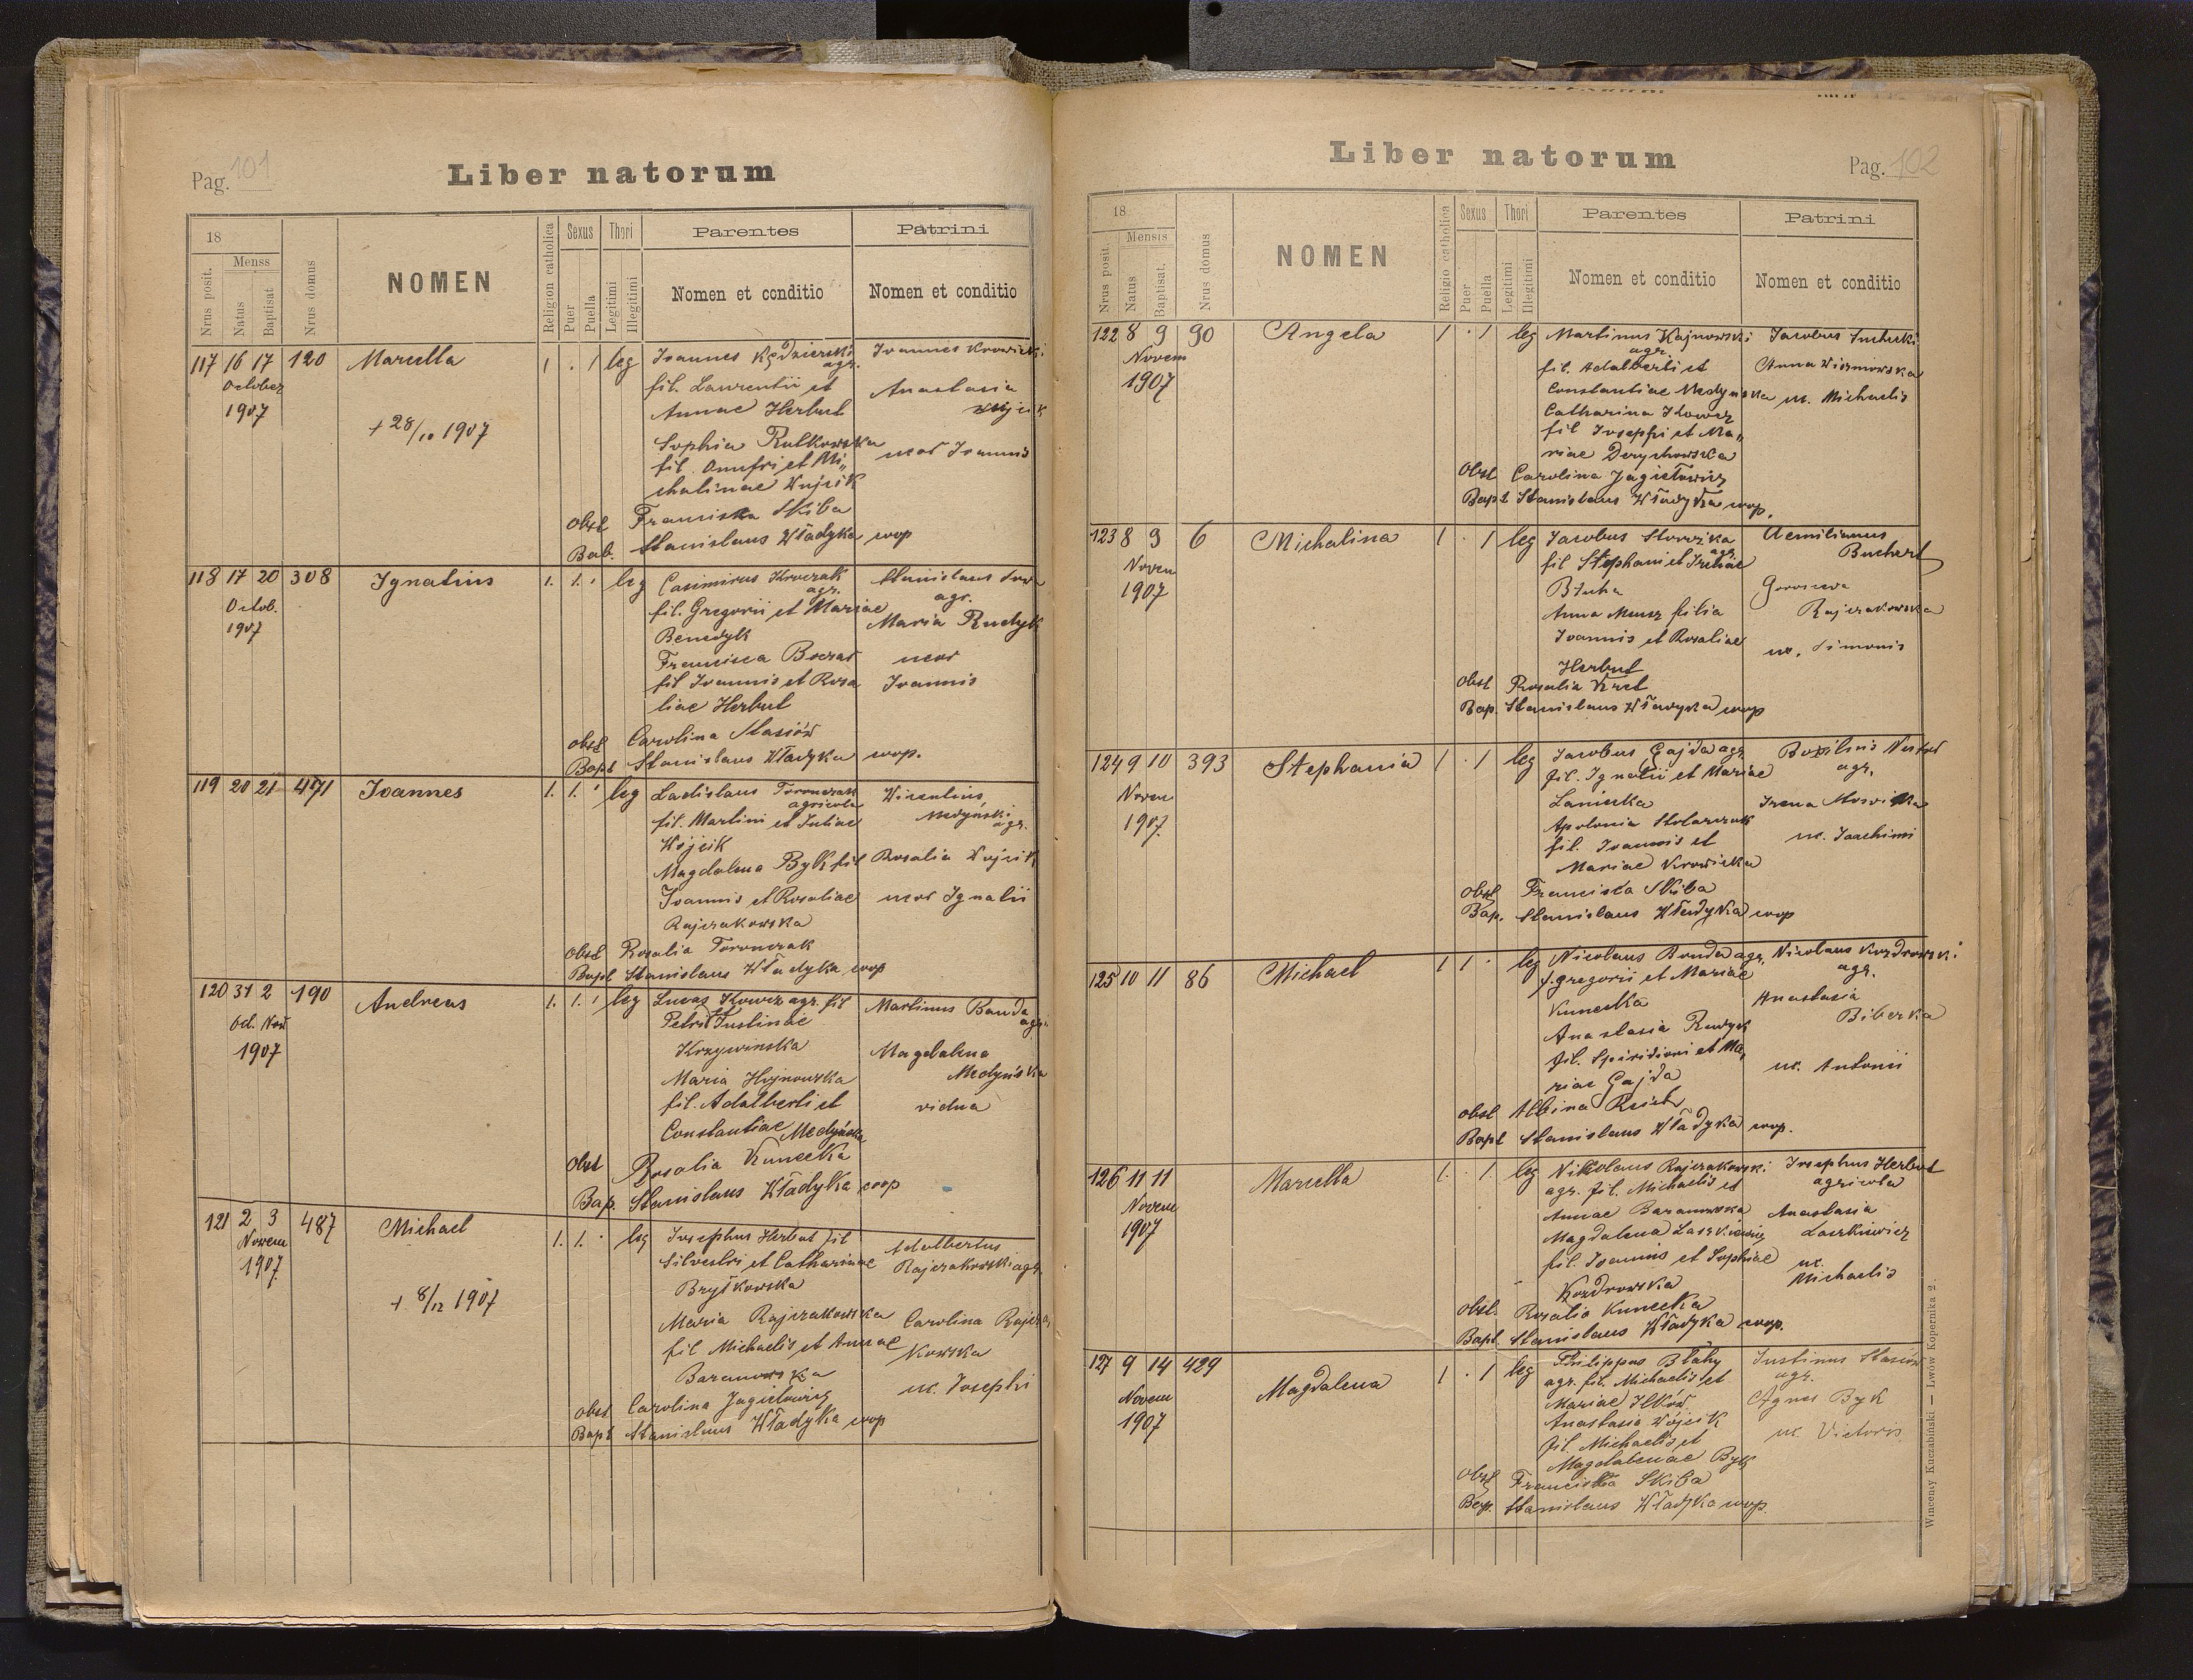 Pag. 101
Liber natorum
18
Nrus posit.
Menss
Natus
Baptisat
Nrus domus
NOMEN
Religion catholica
Sexus
Puer
Puella
Thori
Legitimi
Illegitimi
Parentes
Nomen et conditio
Patrini
Nomen et conditio
117 16 17 120 Marcella 1 . 1 leg Joannes Kędzierski
agr.
October
1907
+ 28/10 1907
fil. Laurentii et
Annae Herbut
Sophia Rutkowska
fil. Onufri et Mi„
chalinae Wujcik
Joannes Krowicki
Anastasia
Wujcik
uxor Joannis
Obst Franciska Skiba
Bab. Stanislaus Władyka coop
118 17 20 308 Ignatius 1. 1. ' leg Casimirus Kroczak
agr.
Octob.
1907
fil. Gregorii et Mariae
Benedyk
Francisca Boczar
fil Joannis et Rosa
liae Herbut
Stanislaus
agr.
Maria Rudyk
uxor
Joannis
obst Carolina Stasiów
Bapt Stanislaus Władyka coop.
119 20 21 471 Joannes 1. 1. ' leg Ladislaus Toronczak
agricola
fil. Martini et Juliae
Wójcik
Magdalena Byk fil
Joannis et Rosaliae
Rajczakowska
Wincentius
Medyński
agr.
Rosalia Wujcik
uxor Ignatii
Obst Rosalia Toronczak
Bapt Stanislaus Władyka coop
120 31 2 190 Andreas 1. 1. ' leg Lucas Ilowicz agr. fil
Oct. Nov
1907
Petri et Justinae
Krzywinska
Maria Hojnowska
fil. Adalberti et
Constantiae Medyńska
Martinus Banda
agr.
Magdalena
Medyńska
vidua
Obst Rosalia Kunecka
Bap. Stanislaus Władyka coop
121 2 3 487 Michael 1. 1. ' leg Josephus Herbut fil
Novem
1907
+ 8/12 1907
Silvestri et Catharinae
Brytkowska
Maria Rajczakowska
fil Michaelis et Annae
Baranowska
Adalbertus
Rajczakowski agr.
Carolina Rajcza„
kowska
ux. Josephi
obst Carolina Jagielowicz
Bapt Stanislaus Władyka coop
Liber natorum
Pag. 102
18
Nrus posit.
Mensis
Natus
Baptisat.
Nrus domus
NOMEN
Religio catholica
Sexus
Puer
Puella
Thori
Legitimi
Illegitimi
Parentes
Nomen et conditio
Patrini
Nomen et conditio
122 8 9 90 Angela 1 . 1 leg Martinus Kajnowski
agr.
Novem
1907
fil. Adalberti et
Constantiae Medyńska
Catharina Ilowicz
fil Josephi et Ma„
riae Derychowska
Jacobus Suchecki
Anna Wiszniowska
ux. Michaelis
Obst Carolina Jagiełowicz
Bapt Stanislaus Władyka coop.
123 8 9 6 Michalina 1 . 1 leg Jacobus Storozka
agr.
Novem
1907
fil Stephani et Juliae
Błucha
Anna Musz filia
Joannis et Rosaliae
Herbut
Aemilianus
Buchert
Rajczakowska
ux. Simonis
obst Rosalia Kret
Bap. Stanislaus Władyka coop
124 9 10 393 Stephania 1 . 1 leg Jacobus Gajda agr
Novem
1907
fil. Ignatii et Mariae
Laniecka
Apolonia Stolarczuk
fil. Joannis et
Mariae Krowicka
Basilius
agr.
Irena
ux. Joachimi
Obst Francisca Skiba
Bap. Stanislaus Władyka coop
125 10 11 86 Michael 1 1 . leg Nicolaus Banda agr.
f. gregorii et Mariae
Kunecka
Anastasia Rudyk
fil. Spiridioni et Ma„
riae Gajda
Nicolaus Kozdrowski
agr.
Anastasia
Biberka
ux. Antonii
obst Albina Reich
Bapt Stanislaus Władyka coop.
126 11 11 Marcella 1. . 1. leg Nikolaus Rajczakowski
Novem
1907
agr. fil. Michaelis et
Annae Baranowska
Magdalena Laszkiewicz
fil. Joannis et Sophiae
Kozdrowska
Josephus Herbut
agricola
Anastasia
Laszkiewicz
ux.
Michaelis
obst. Rosalia Kunecka
Bapt. Stanislaus Władyka coop.
127 9 14 429 Magdalena 1 . 1 leg Philippus Błahy
Novem
1907
agr. fil. Michaelis et
Mariae Ilków
Anastasia Wójcik
fil. Michaelis et
Magdalenae Byk
Justinus Stasiów
agr.
Agnes Byk
ux. Victoris
obst Franciska Skiba
Bap. Stanislaus Władyka coop.
Wincenty Kuczabiński — Lwów Kopernika 2.